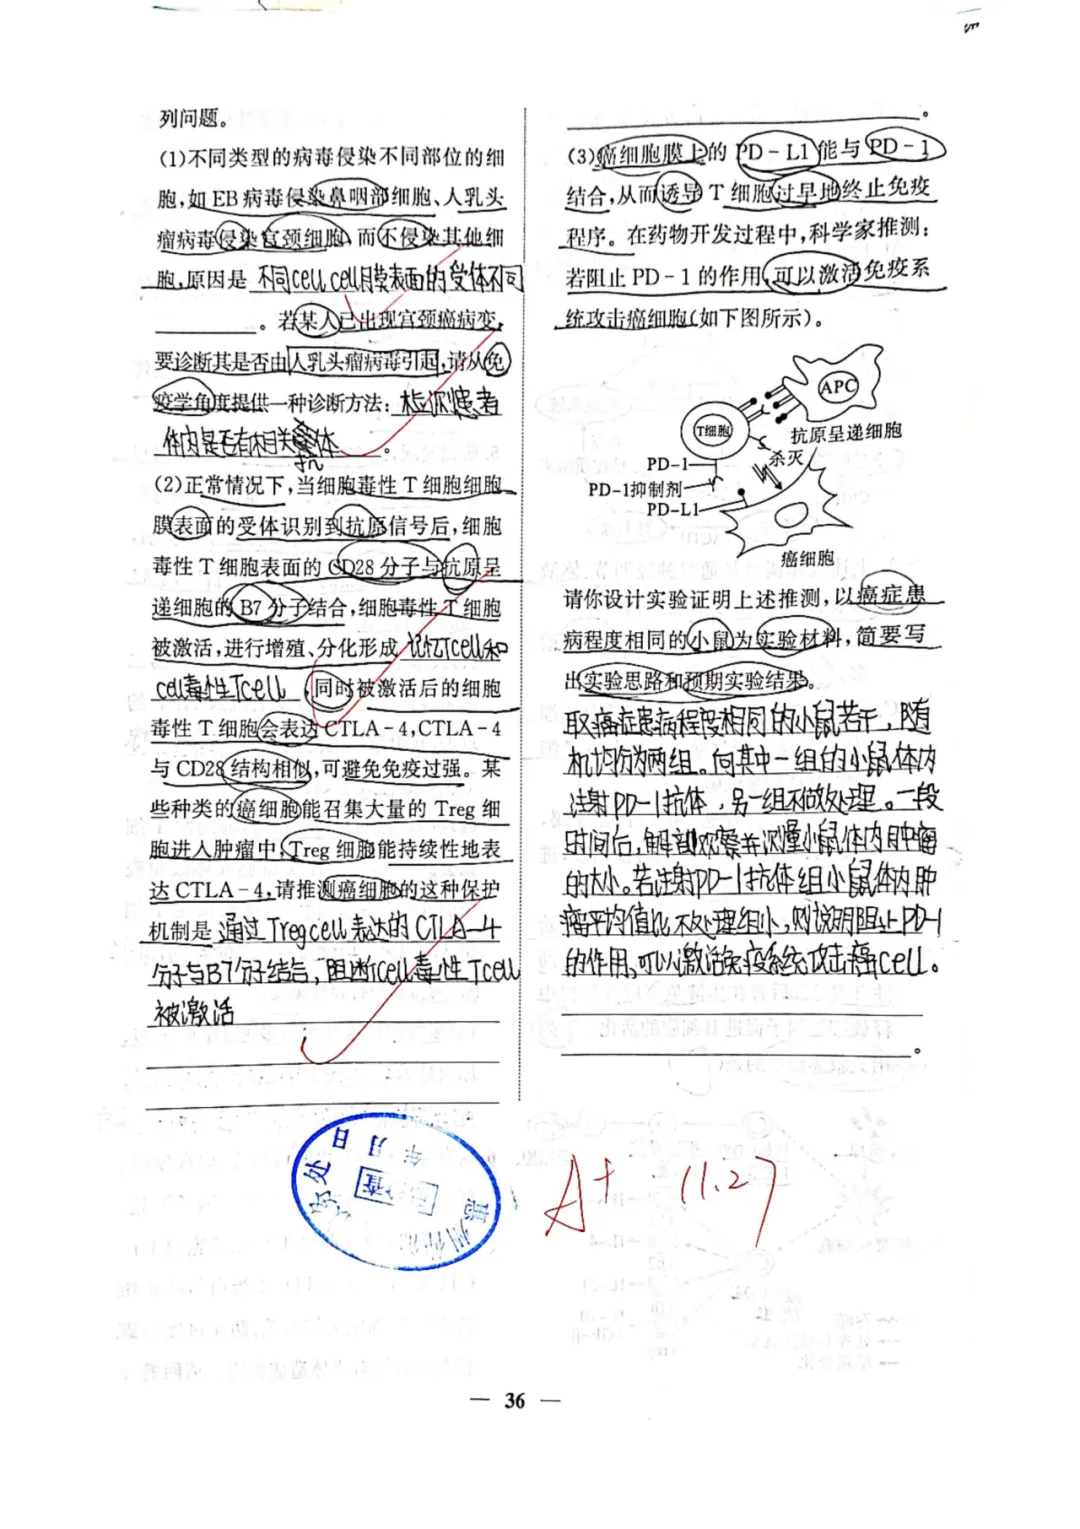 列问题。
(1)不同类型的病毒侵染不同部位的细
胞,如EB病毒侵染鼻咽部细胞、人乳头
瘤病毒侵染宫颈细胞,而不侵染其他细
胞,原因是 不同cell,cell膜表面的受体不同
。若某人已出现宫颈癌病变,
要诊断其是否由人乳头瘤病毒引起,请从免
疫学角度提供一种诊断方法: 检测患者
体内是否有相关抗体。
(2)正常情况下,当细胞毒性T细胞细胞
膜表面的受体识别到抗原信号后,细胞
毒性T细胞表面的CD28分子与抗原呈
递细胞的B7分子结合,细胞毒性T细胞
被激活,进行增殖、分化形成 记忆Tcell和
cell毒性Tcell,同时被激活后的细胞
毒性T细胞会表达CTLA-4,CTLA-4
与CD28结构相似,可避免免疫过强。某
些种类的癌细胞能召集大量的Treg细
胞进入肿瘤中,Treg细胞能持续性地表
达CTLA-4,请推测癌细胞的这种保护
机制是 通过Tregcell表达的CTLA-4
分子与B7分子结合,阻断cell毒性Tcell
被激活
。
(3)癌细胞膜上的PD-L1能与PD-1
结合,从而诱导T细胞过早地终止免疫
程序。在药物开发过程中,科学家推测:
若阻止PD-1的作用,可以激活免疫系
统攻击癌细胞(如下图所示)。
APC
T细胞
抗原呈递细胞
PD-1
杀灭
PD-1抑制剂
PD-L1
癌细胞
请你设计实验证明上述推测,以癌症患
病程度相同的小鼠为实验材料,简要写
出实验思路和预期实验结果。
取癌症患病程度相同的小鼠若干,随
机均分为两组。向其中一组的小鼠体内
注射PD-1抗体,另一组不做处理。一段
时间后,解剖观察并测量小鼠体内肿瘤
的大小。若注射PD-1抗体组小鼠体内肿
瘤平均值比不处理组小,则说明阻止PD-1
的作用,可以激活免疫系统攻击癌cell。
。
A+ 11.27
— 36 —